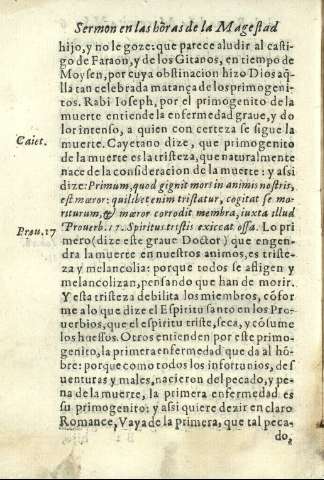 Sermon en las hōras de la Magestad
hijo, y no le goze: que parece aludir al casti
go de Faraon, y de los Gitanos, en tiempo de
Moysen, por cuya obstinacion hizo Dios aq̃-
lla tan celebrada matança de los primogeni-
tos. Rabi Ioseph, por el primogenito de la
muerte entiende la enfermedad graue, y do
lor intenso, a quien con certeza se sigue la
Caiet. muerte. Cayetano dize, que primogenito
de la muerte es la tristeza, que naturalmente
nace de la consideracion de la muerte: y assi
dize: Primum, quod gignit mors in animis nostris,
est mœror: quilibet enim tristatur, cogitat se mo-
riturum, & mœror corrodit membra, iuxta illud
Prou. 17 Prouerb. 17. Spiritus tristis exiccat ossa. Lo pri
mero (dize este graue Doctor) que engen-
dra la muerte en nuestros animos, es triste-
za y melancolia: porque todos se afligen y
melancolizan, pensando que han de morir.
Y esta tristeza debilita los miembros, cõfor
me a lo que dize el Espiritu santo en los Pro-
uerbios, que el espiritu triste, seca, y cõsume
los huessos. Otros entienden por este primo-
genito, la primera enfermedad que da al hõ-
bre: porque como todos los infortunios, des
uenturas y males, nacieron del pecado, y pe-
na de la muerte, la primera enfermedad es
su primogenito: y assi quiere dezir en claro
Romance, Vaya de la primera, que tal peca-
do,